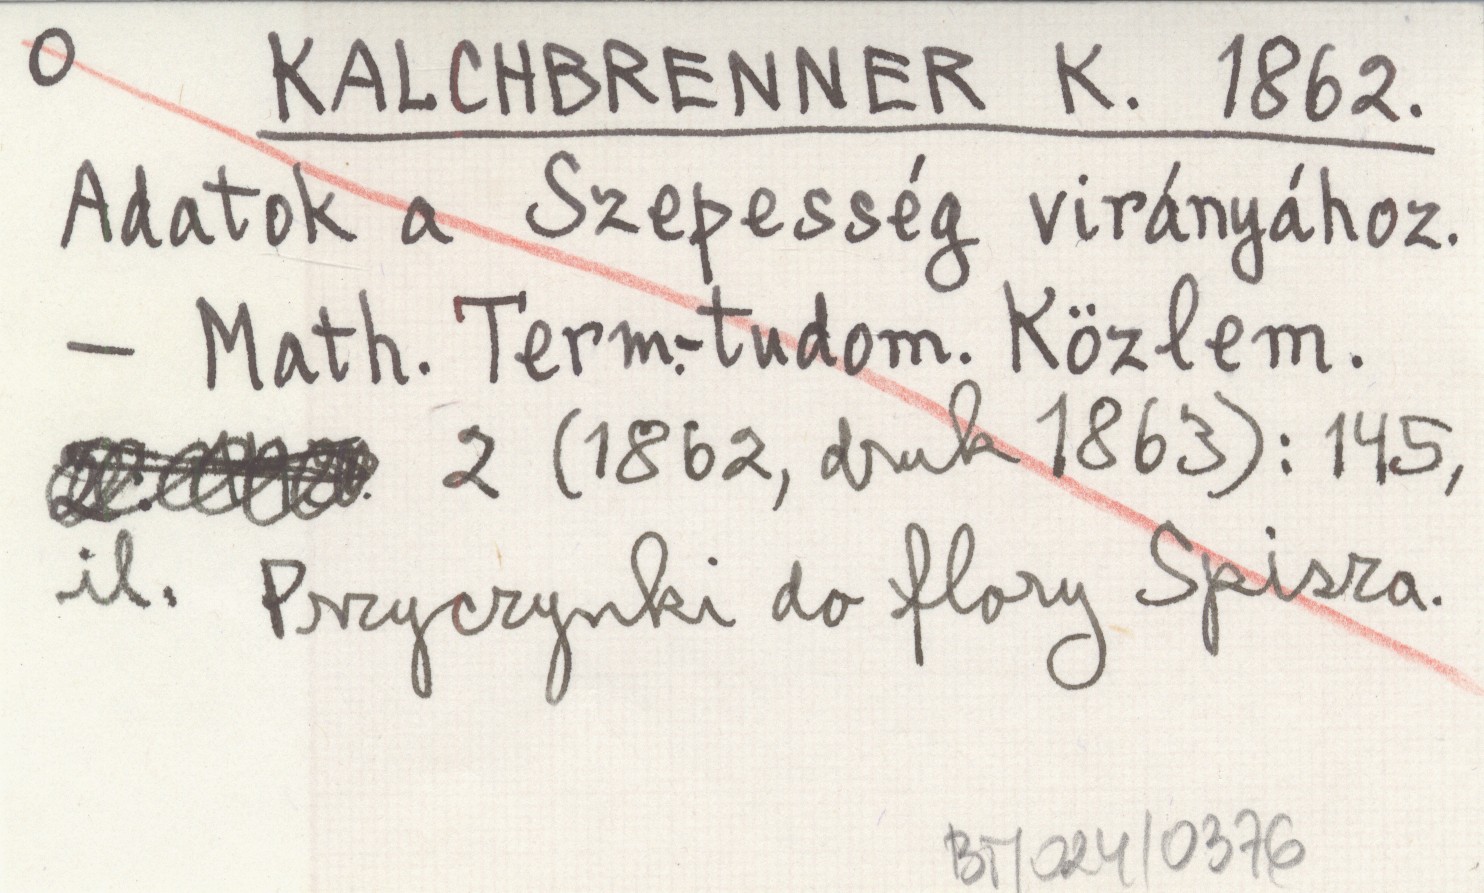 O KALCHBRENNER K. 1862.
Adatok a Szepesség virányához.
— Math. Term.-tudom. Közlem.
2 (1862, druk 1863): 145,
il. Przyczynki do flory Spisza.
BT/024/0376